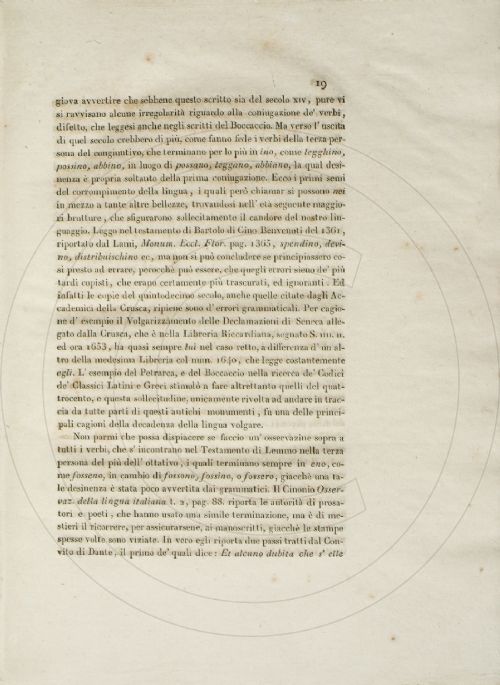 19
giova avvertire che sebbene questo scritto sia del secolo XIV, pure vi
si ravvisano alcune irregolarità riguardo alla coniugazione de' verbi,
difetto, che leggesi anche negli scritti del Boccaccio. Ma verso l'uscita
di quel secolo crebbero di più, come fanno fede i verbi della terza per-
sona del congiuntivo, che terminano per lo più in ino, come legghino,
possino, abbino, in luogo di possano, leggano, abbiano, la qual desi-
nenza è propria soltanto della prima coniugazione. Ecco i primi semi
del corrompimento della lingua, i quali però chiamar si possono nei
in mezzo a tante altre bellezze, trovandosi nell' età seguente maggio-
ri brutture, che sfigurarono sollecitamente il candore del nostro lin-
guaggio. Leggo nel testamento di Bartolo di Cino Benvenuti del 1361,
riportato dal Lami, Monum. Eccl. Flor. pag. 1365, spendino, devi-
no, distribuischino ec., ma non si può concludere se principiassero co-
sì presto ad errare, perocchè può essere, che quegli errori sieno de' più
tardi copisti, che erano certamente più trascurati, ed ignoranti. Ed
infatti le copie del quintodecimo secolo, anche quelle citate dagli Ac-
cademici della Crusca, ripiene sono d' errori grammaticali. Per cagio-
ne d' esempio il Volgarizzamento delle Declamazioni di Seneca alle-
gato dalla Crusca, che è nella Libreria Riccardiana, segnato S. III. n.
ed ora 1653, ha quasi sempre lui nel caso retto, a differenza d' un al-
tro della medesima Libreria col num. 1640, che legge costantemente
egli. L' esempio del Petrarca, e del Boccaccio nella ricerca de' Codici
de' Classici Latini e Greci stimolò a fare altrettanto quelli del quat-
trocento, e questa sollecitudine, unicamente rivolta ad andare in trac-
cia da tutte parti di questi antichi monumenti, fu una delle princi-
pali cagioni della decadenza della lingua volgare.
Non parmi che possa dispiacere se faccio un' osservazine sopra a
tutti i verbi, che s' incontrano nel Testamento di Lemmo nella terza
persona del più dell' ottativo, i quali terminano sempre in eno, co-
me fosseno, in cambio di fossono, fossino, o fossero, giacchè una ta-
le desinenza è stata poco avvertita dai grammatici. Il Cinonio Osser-
vaz. della lingua italiana t. 2, pag. 88. riporta le autorità di prosa-
tori e poeti, che hanno usato una simile terminazione, ma è di me-
stieri il ricorrere, per assicurarsene, ai manoscritti, giacchè le stampe
spesse volte sono viziate. In vero egli riporta due passi tratti dal Con-
vito di Dante, il primo de' quali dice: Et alcuno dubita che s' elle